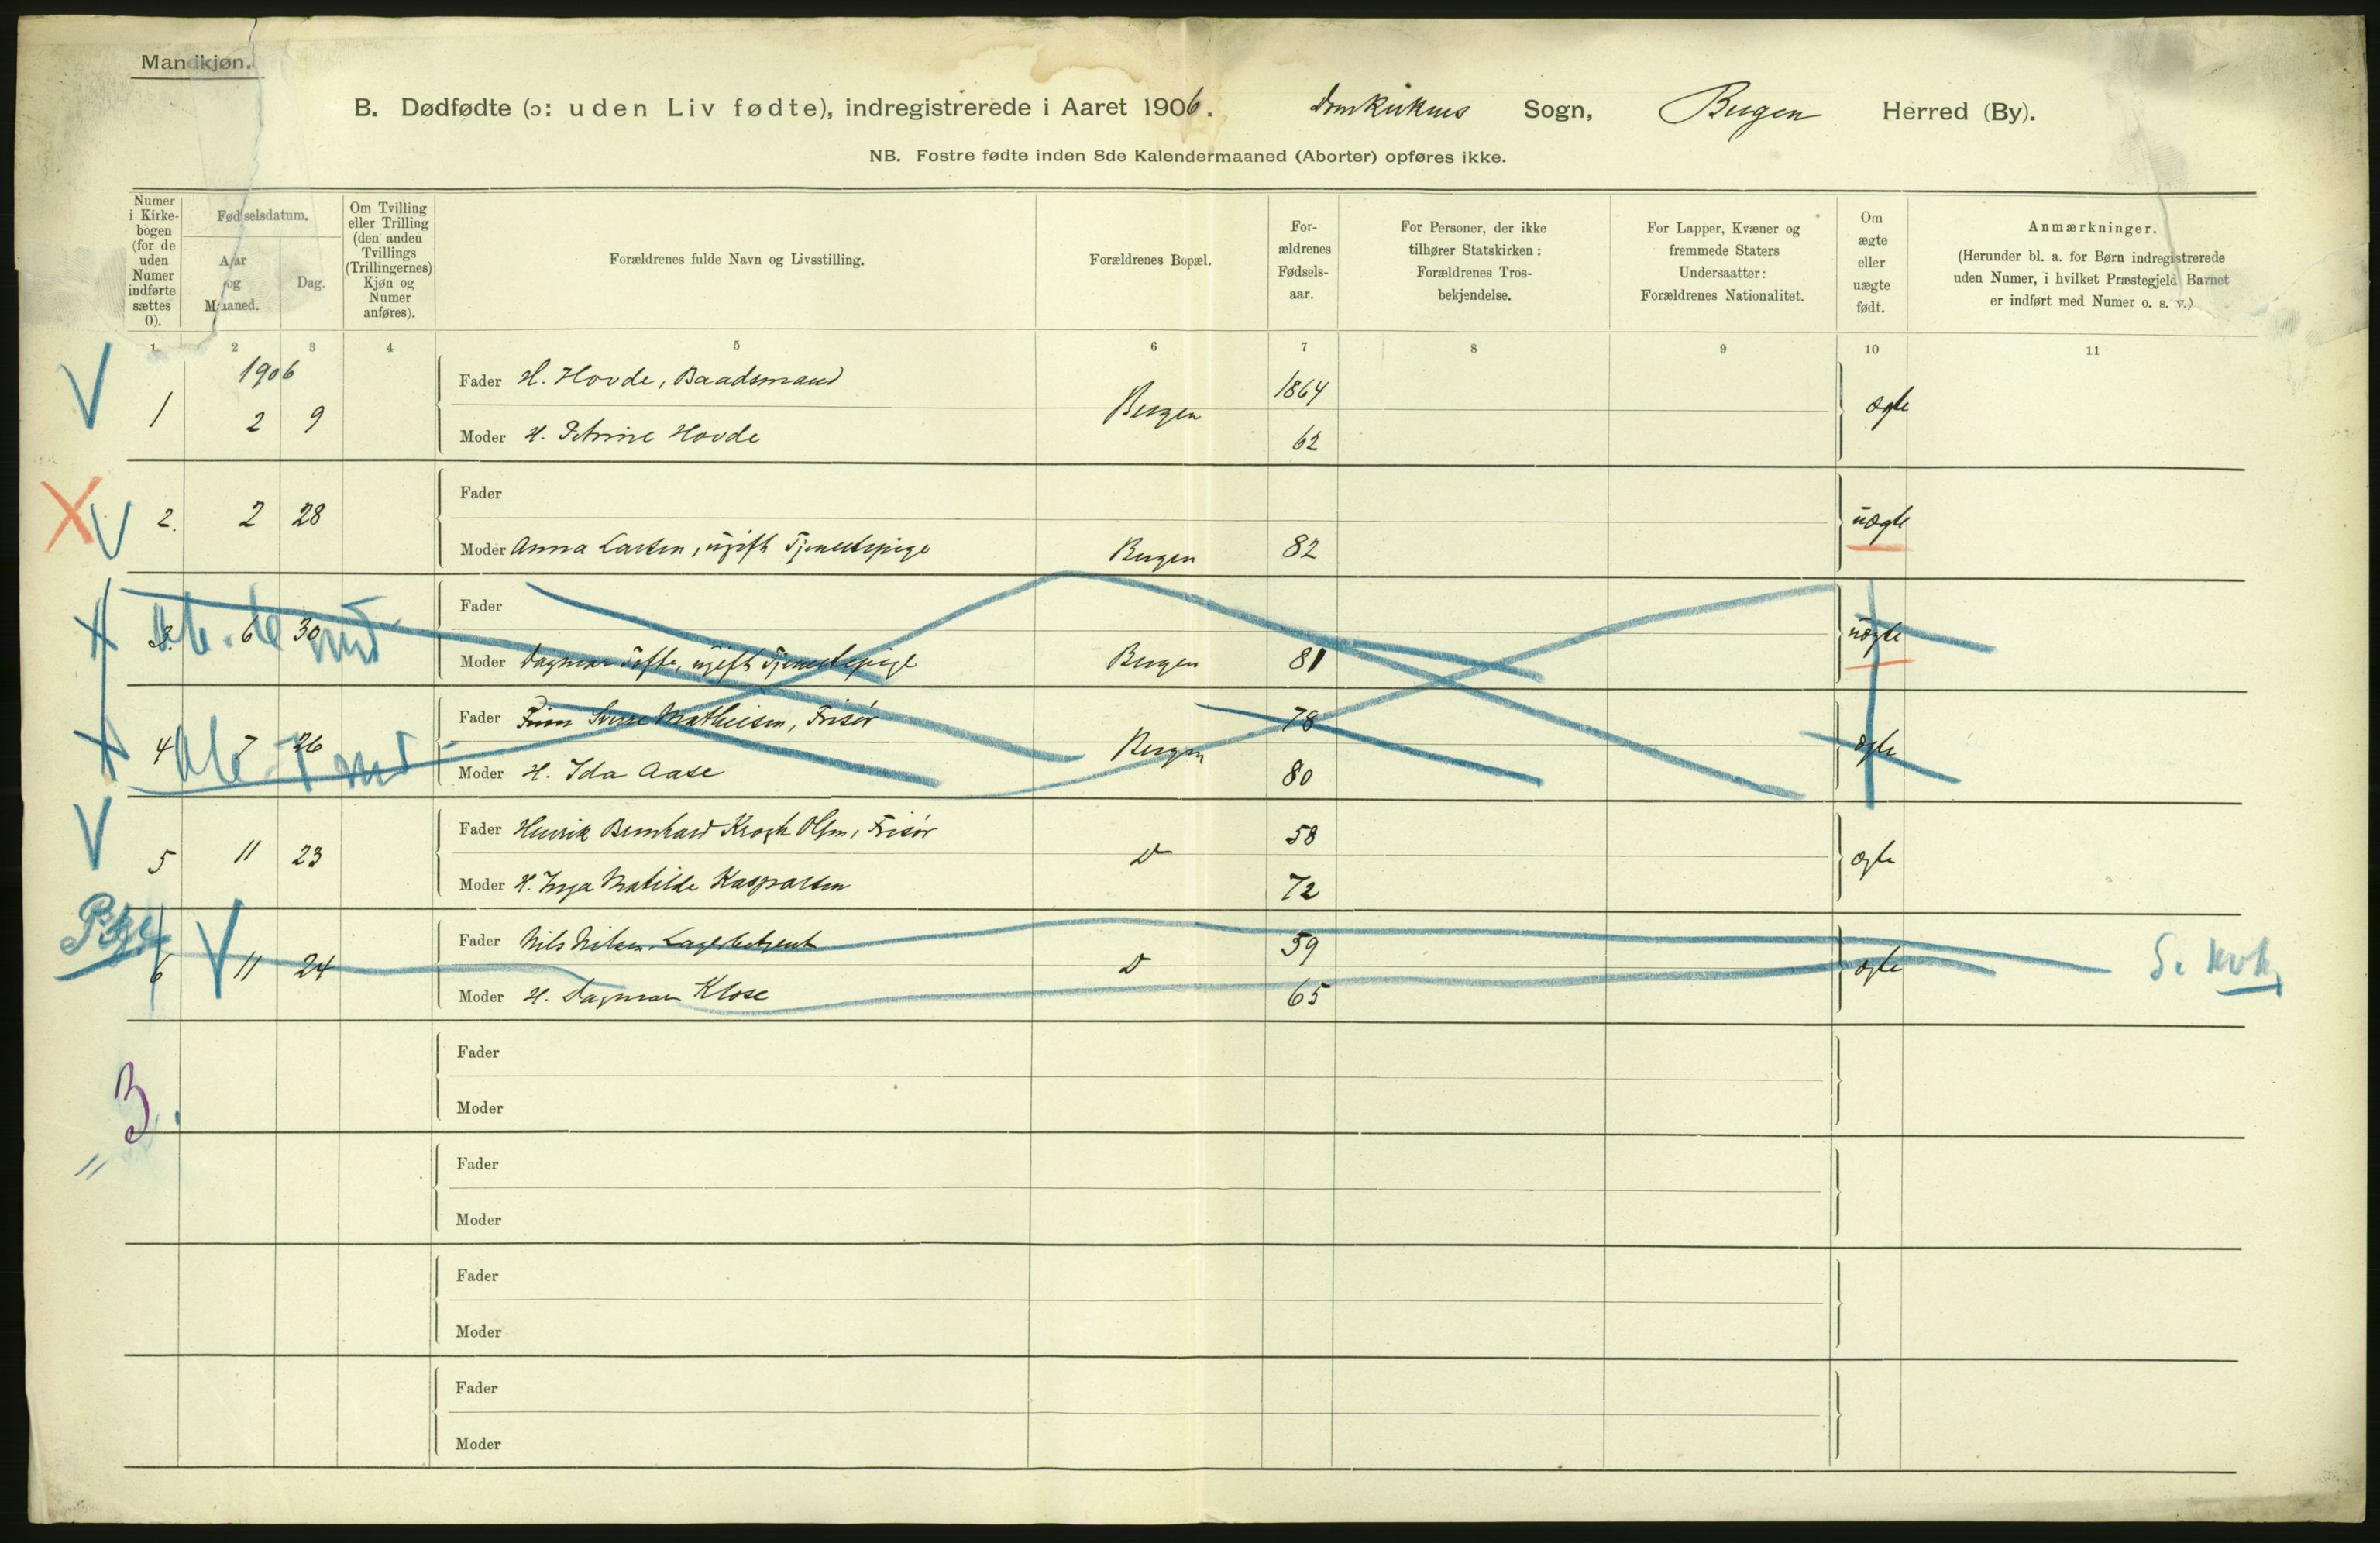 Mandkjøn.
B. Dødfødte (ɔ: uden Liv fødte), indregistrerede i Aaret 1906. Domkirkens Sogn, Bergen Herred (By).
NB. Fostre fødte inden 8de Kalendermaaned (Aborter) opføres ikke.
Numer i Kirke-bogen (for de uden Numer indførte sættes 0).
Fødselsdatum.
Aar og Maaned.
Dag.
Om Tvilling eller Trilling (den anden Tvillings (Trillingernes) Kjøn og Numer anføres).
Forældrenes fulde Navn og Livsstilling.
Forældrenes Bopæl.
For-ældrenes Fødsels-aar.
For Personer, der ikke tilhører Statskirken: Forældrenes Tros-bekjendelse.
For Lapper, Kvæner og fremmede Staters Undersaatter: Forældrenes Nationalitet.
Om ægte eller uægte født.
Anmærkninger.
(Herunder bl. a. for Børn indregistrerede uden Numer, i hvilket Præstegjeld Barnet er indført med Numer o. s. v.)
1 2 3 4 5 6 7 8 9 10 11
1906
V 1 2 9 Fader H. Hovde, Baadsmand Bergen 1864 ægte
Moder H. Petrine Hovde 62
X V 2. 2 28 Fader uægte
Moder Anna Larsen, ugift Tjenestepige Bergen 82
3. 6 30 Fader uægte
Moder Dagmar Tofte, ugift Tjenestepige Bergen 81
4 7 26 Fader Sverre Mathiesen, Frisør Bergen 78 ægte
7 md
Moder H. Ida Aase 80
V 5 11 23 Fader Henrik Bernhard Krogh Olsen, Frisør D 58 ægte
Moder H. Inga Matilde Kaspersen 72
Pige V 6 11 24 Fader Nils Nilsen, Lagerbetjent D 59 ægte S. kvk
Moder H. Dagmar Klose 65
Fader
3.
Moder
"
Fader
Moder
Fader
Moder
Fader
Moder